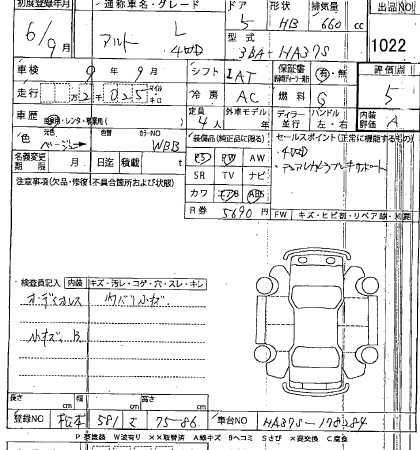 初度登録年月 通称車名・グレード ドア 形状 排気量 出品NO
6/9月 アルト L 4WD 5 HB 660 cc 1022
型式 3BA-HA37S
車検 9年 9月 シフト IAT 保証書 有・無 評価点
走行 2 0 25 マイル キロ 冷房 AC 燃料 G 5
車歴 自家用・レンタ・事業用( ) 定員 4人 外車モデル ディーラー 並行 ハンドル 左・右 内装 A
色 元色 ベージュ 色替 カラーNO WBB 装備品(純正品に限る) セールスポイント(正常に機能するもの)
PS PW AW 4WD
名義変更期限 月 日迄 積載 t SR TV ナビ デュアルカメラブレーキサポート
注意事項(欠品・修復(不具合箇所および状態) カワ エアB ABS
R券 5690円 FW キズ・ヒビ割・リペア線・X要
検査員記入 内装 キズ・汚レ・コゲ・穴・スレ・キレ
オーディオレス 内バリ小キズ
小キズ
長さ cm 幅 cm 高さ cm
登録NO 松本 581 さ 75-86 車台NO HA37S-178284
P 要塗装 W波有り ××取替済 A線キズ Bヘコミ Sさび ×要交換 C腐食